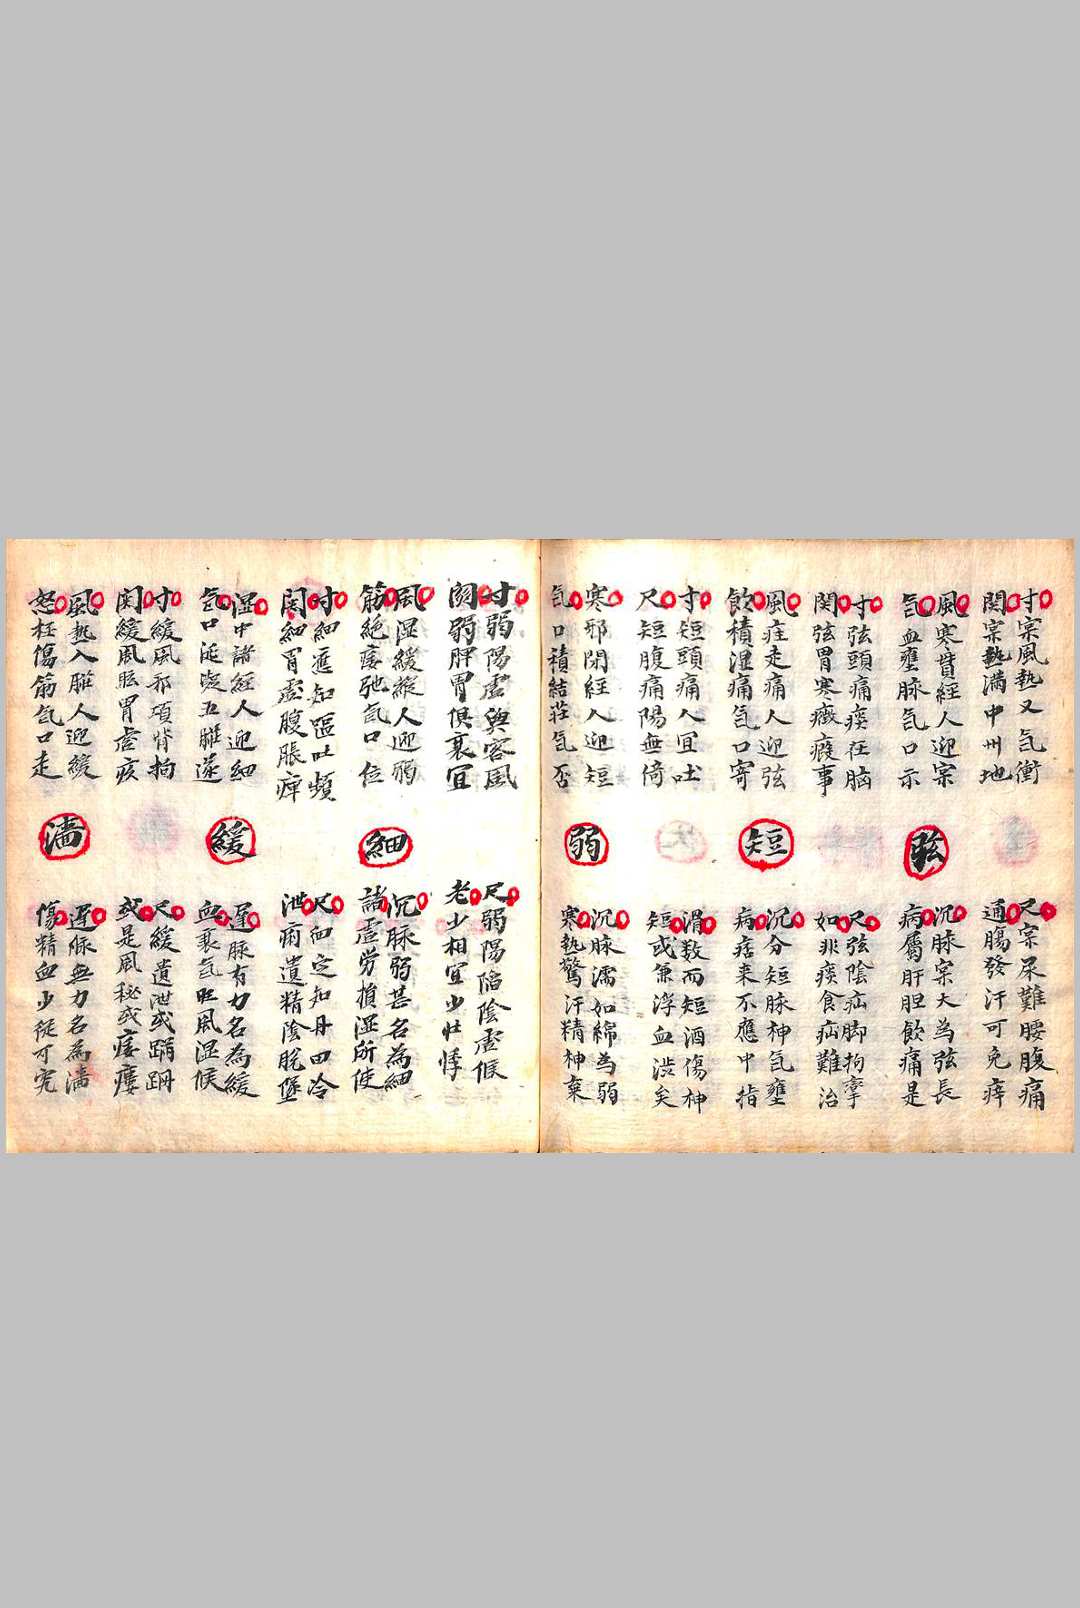 寸宲風热又气衝
関宲热満中州地
尺宲尿難腰腹痛
通腸發汗可免瘁
風寒皆經人迎宲
气血壅脉气口示
弦
沉脉宲大為弦長
病属肝胆飲痛是
寸弦頭痛痰在脑
関弦胃寒癥瘕事
尺弦陰疝脚拘挛
如非痰食疝難治
風疰走痛人迎弦
飲積湿痛气口寄
短
沉分短脉神气壅
病痞来不應中指
寸短頭痛人宜吐
尺短腹痛陽無倚
滑数而短酒傷神
短或兼浮血澁矣
寒邪閉經人迎短
气口積結荘气否
弱
沉脉濡如綿為弱
寒热驚汗精神棄
寸弱陽虚與客風
関弱脾胃俱衰冝
尺弱陽陷陰虚候
老少相宜少壮悸
風湿緩縱人迎弱
筋絶痿弛气口位
細
沉脉弱甚名為細
諸虚労損湿所使
寸細應知嘔吐頻
関細胃虚腹脹痺
尺細定知丹田冷
泄痢遺精陰脱墜
湿中諸經人迎細
气口涎凝五臟遂
緩
遲脉有力名為緩
血衰气旺風湿候
寸緩風邪項背拘
関緩風眩胃虚疾
尺緩遺泄或踊跚
或是風秘或痿痿
風热入臟人迎緩
怒極傷筋气口走
濇
遲脉無力名為濇
傷精血少從可究